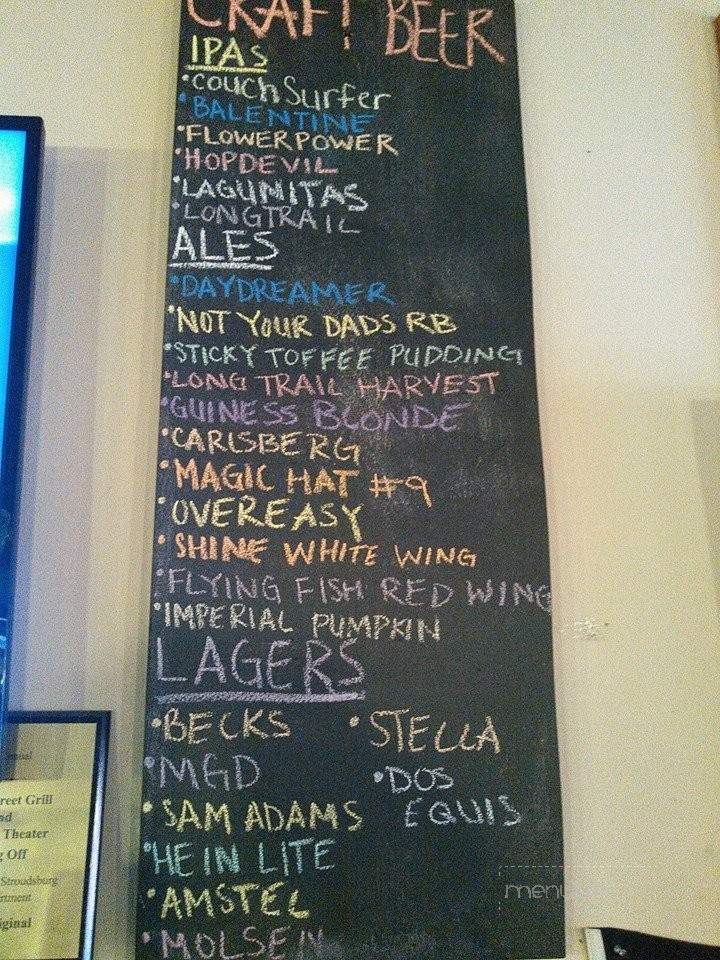 CRAFT BEER
IPAS
•COUCH SURFER
•BALENTINE
•FLOWERPOWER
•HOPDEVIL
•LAGUNITAS
•LONGTRAIL
ALES
•DAYDREAMER
•NOT YOUR DADS RB
•STICKY TOFFEE PUDDING
•LONG TRAIL HARVEST
•GUINESS BLONDE
•CARLSBERG
•MAGIC HAT #9
•OVEREASY
•SHINE WHITE WING
•FLYING FISH RED WING
•IMPERIAL PUMPKIN
LAGERS
•BECKS •STELLA
•MGD •DOS
EQUIS
•SAM ADAMS
•HEIN LITE
•AMSTEL
•MOLSEN
reet Grill
nd
Theater
g Off
Stroudsburg
rtment
iginal
menu